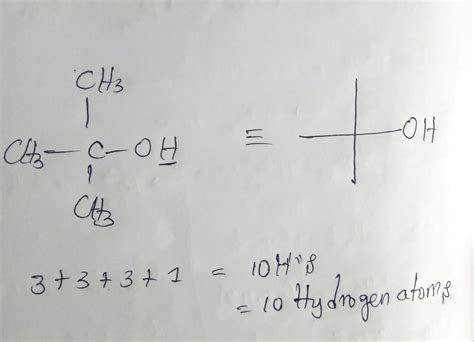 CH3
CH3 - C - OH ≡ OH
CH3
3 + 3 + 3 + 1 = 10 H's
= 10 Hydrogen atoms